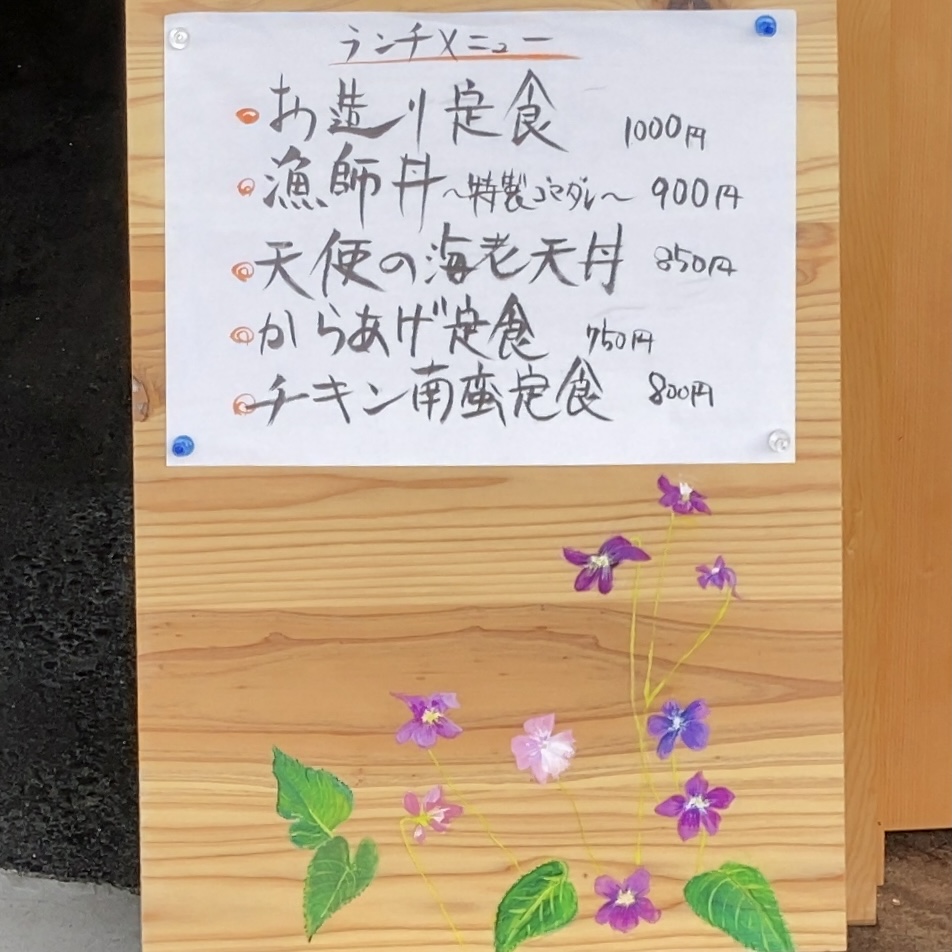 ランチメニュー
お造り定食 1000円
漁師丼～特製ゴマダレ～ 900円
天使の海老天丼 850円
からあげ定食 750円
チキン南蛮定食 800円